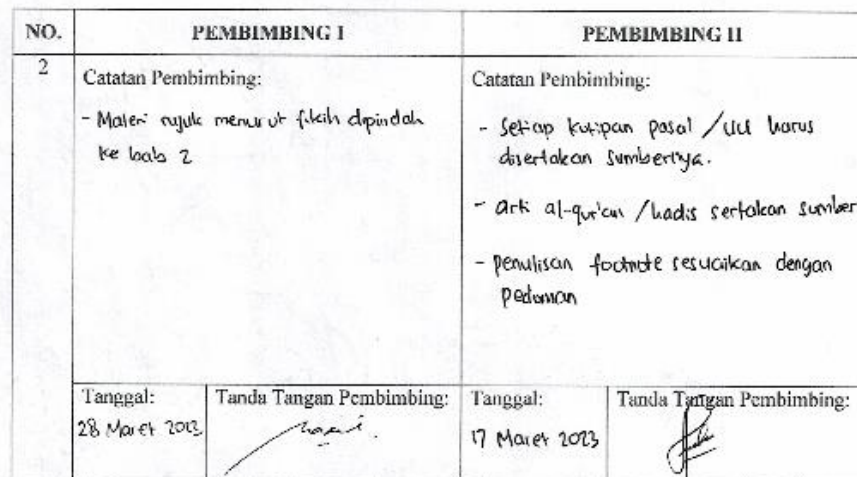 NO.
PEMBIMBING I
PEMBIMBING II
2
Catatan Pembimbing:
- Materi rujuk menurut fikih dipindah
ke bab 2
Catatan Pembimbing:
- Setiap kutipan pasal / UU harus
disertakan sumbernya.
- arti al-qur'an / hadis sertakan sumber
- penulisan footnote sesuaikan dengan
pedoman
Tanggal:
28 Maret 2023
Tanda Tangan Pembimbing:
Tanggal:
17 Maret 2023
Tanda Tangan Pembimbing: